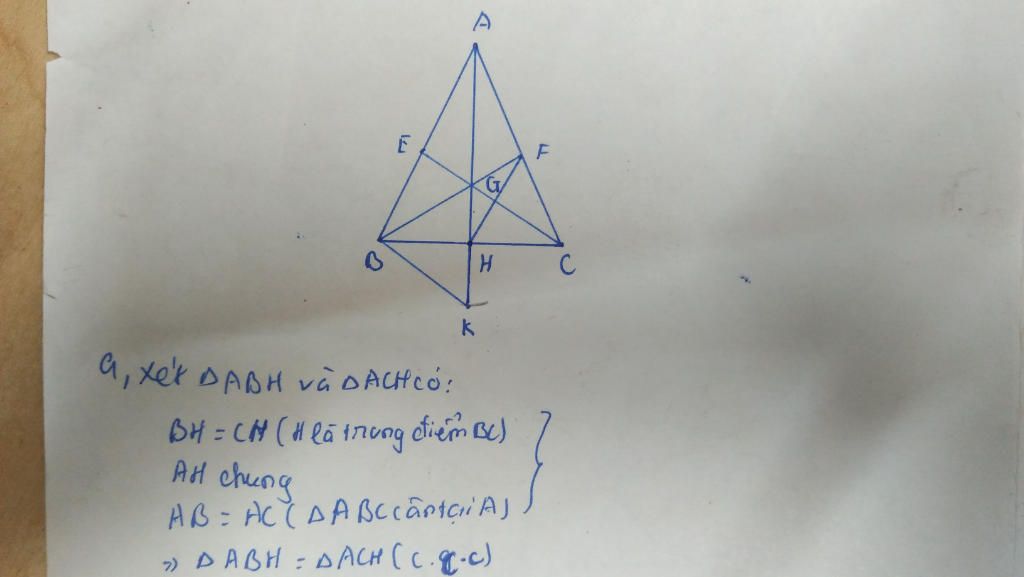 A
E F
G
B H C
K
a, xét ΔABH và ΔACH có:
BH = CH (H là trung điểm BC)
AH chung
AB = AC (ΔABC cân tại A)
=> ΔABH = ΔACH (c.c.c)